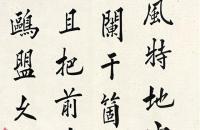 風特地
闌干箇
且把前
鷗盟久